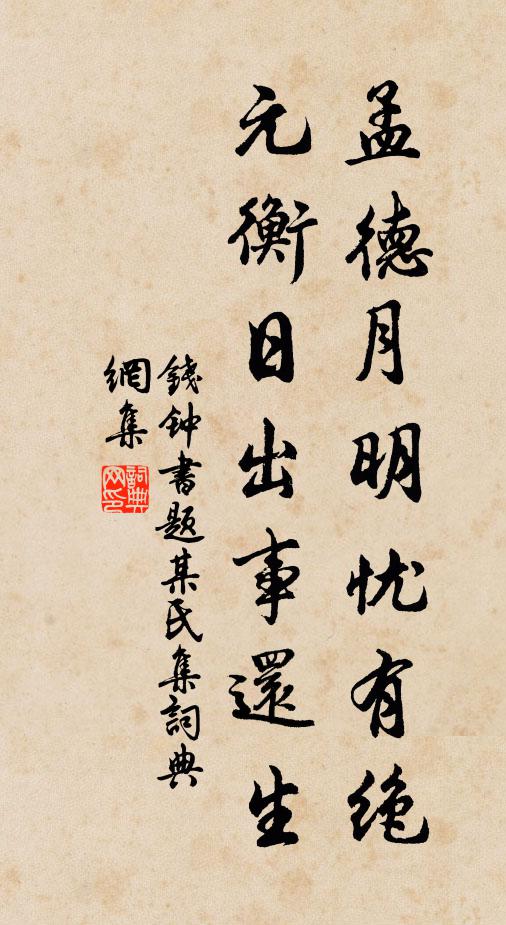 孟德月明忧有绝
元衡日出事還生
錢钟書题某氏集詞典
網集
詞典
网印